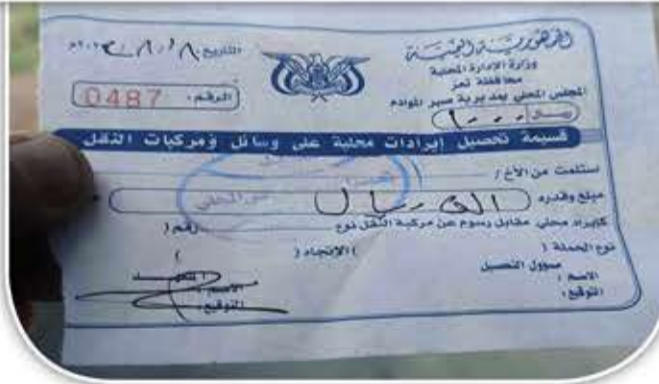 الجمهورية اليمنية
وزارة الإدارة المحلية
محافظة تعز
المجلس المحلي بمديرية صبر الموادم
ريال ١٠٠٠
التاريخ
الرقم: 0487
قسيمة تحصيل إيرادات محلية على وسائل ومركبات النقل
استلمت من الأخ /
مبلغ وقدره ( الف ريال )
كإيراد محلي مقابل رسوم عن مركبة النقل نوع رقم (
نوع الحملة ( ) الإتجاه ( )
مسؤول التحصيل
الاسم :
الاسم :
التوقيع :
التوقيع :